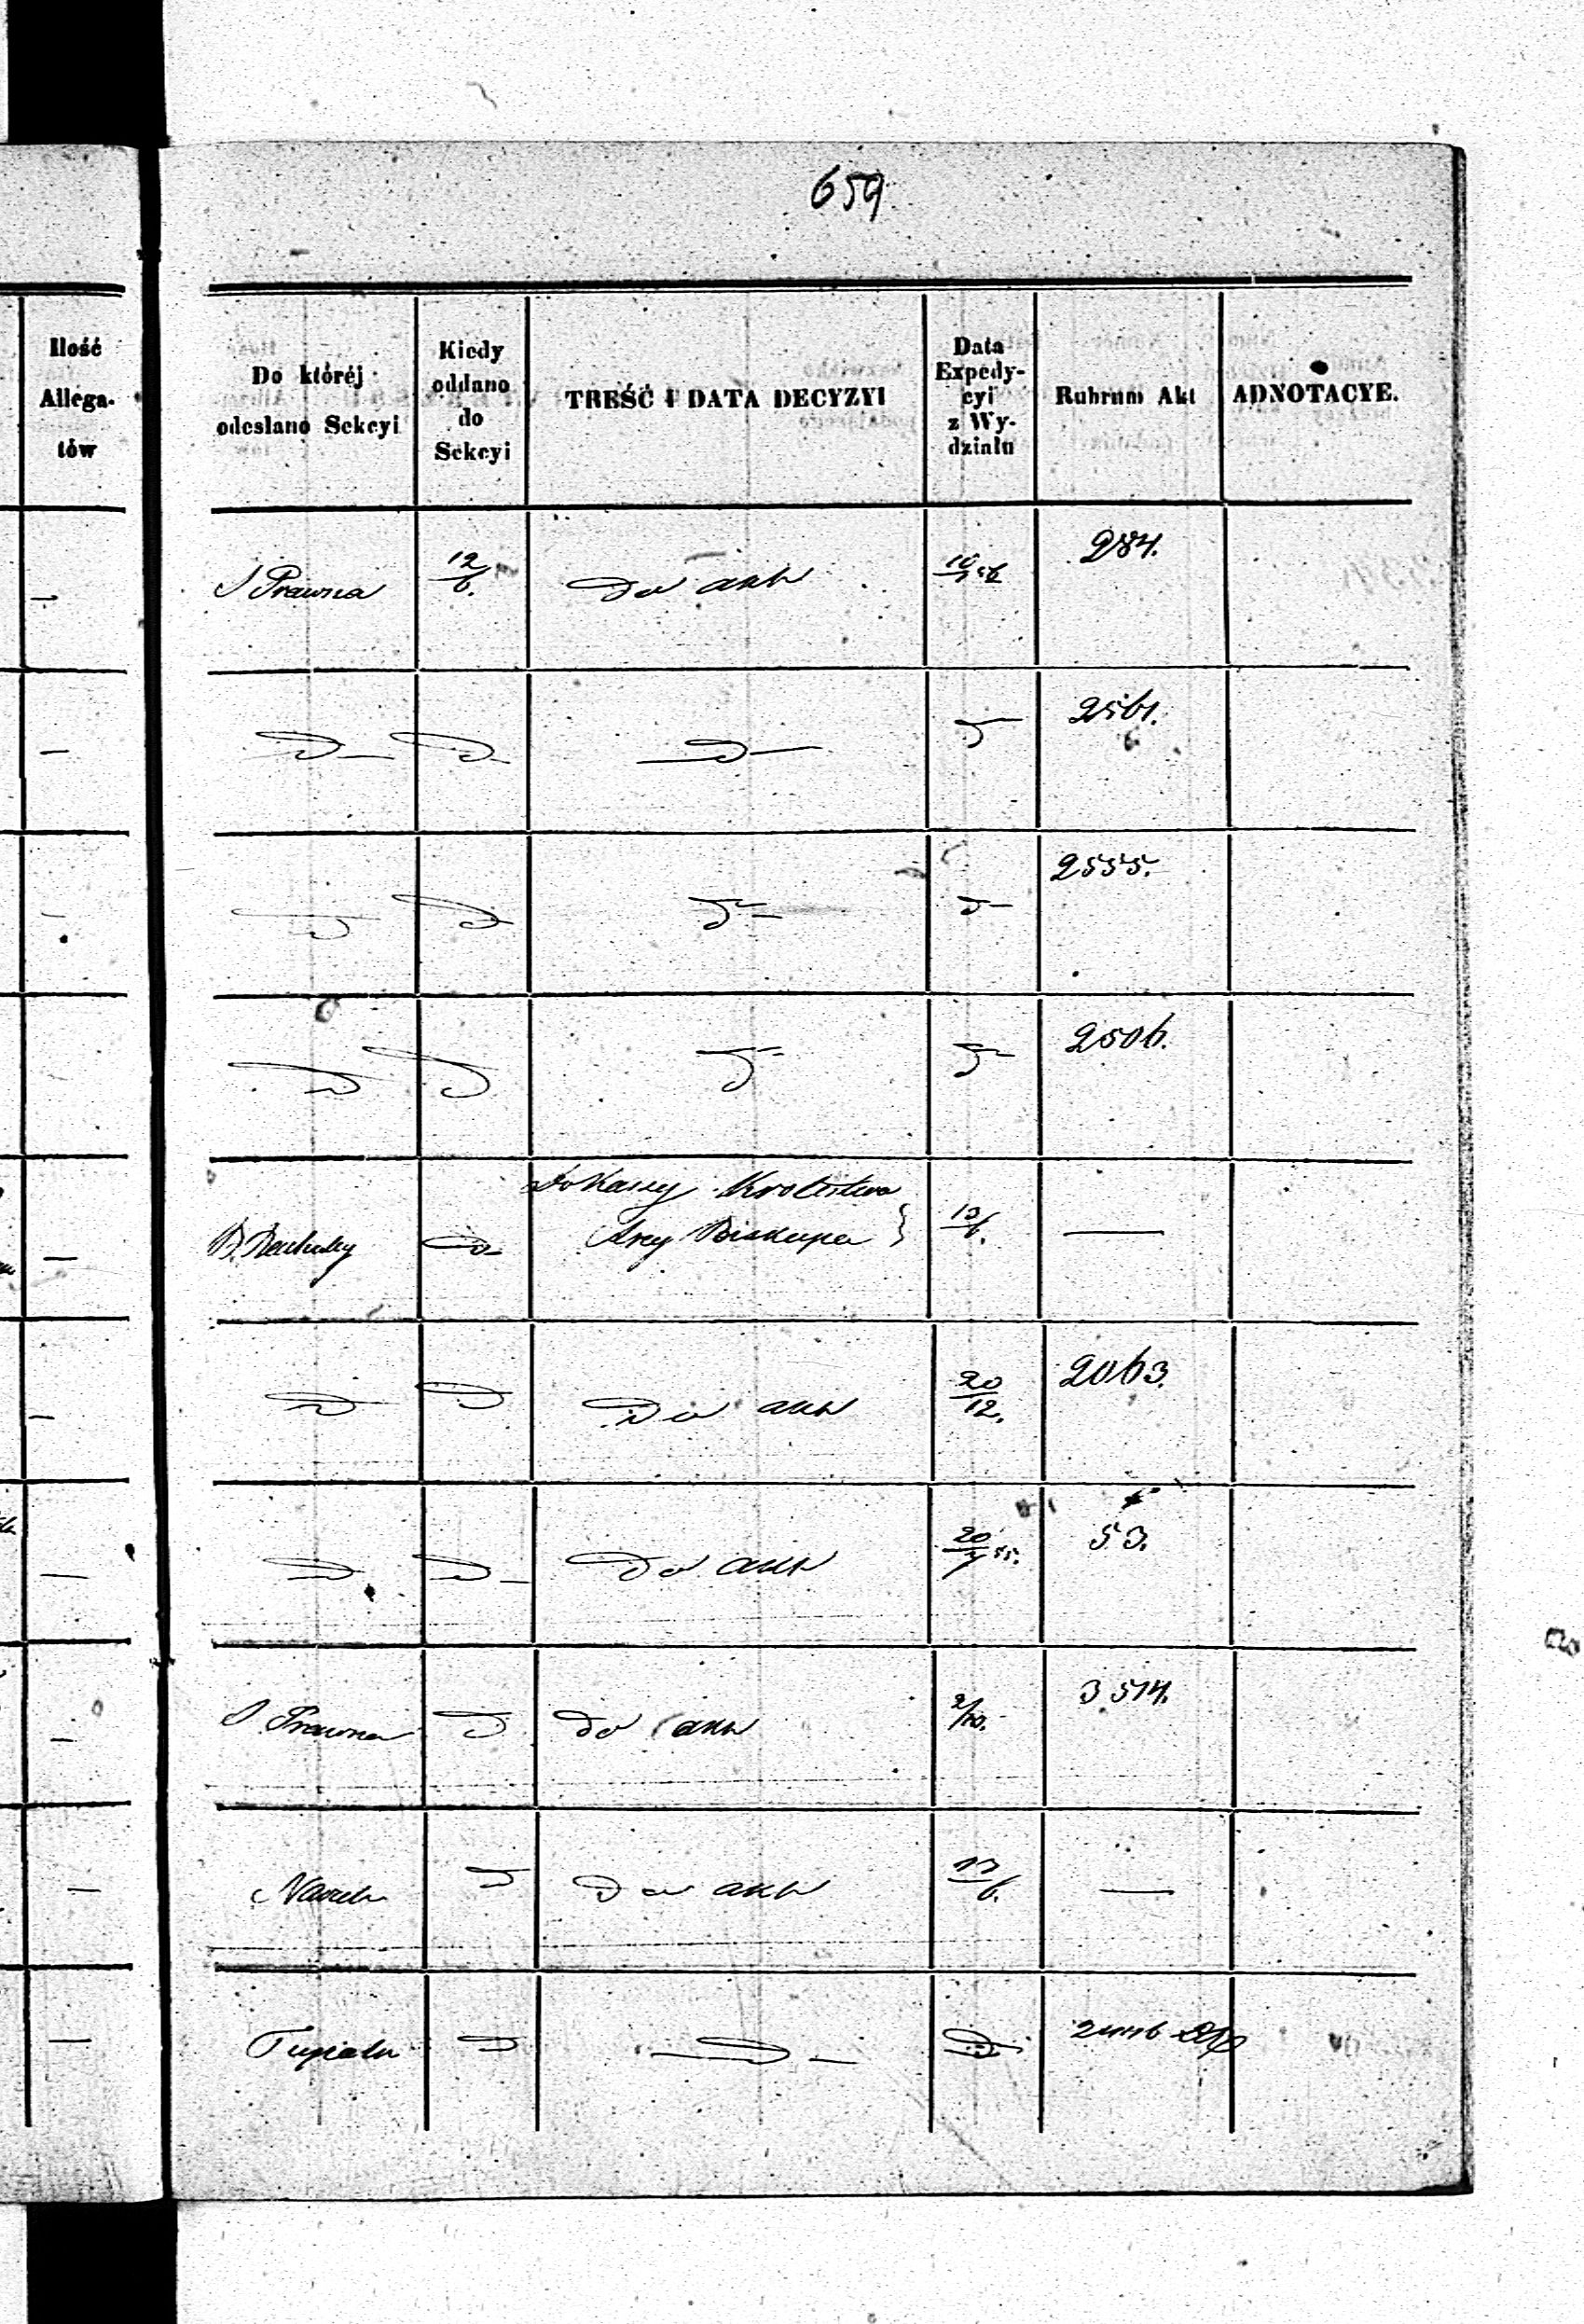 659
Ilość
Allega-
tów
Do któréj
odesłano Sekcyi
Kiedy
oddano
do
Sekcyi
TREŚĆ I DATA DECYZYI
Data
Expedy-
cyi
z Wy-
działu
Rubrum Akt
ADNOTACYE.
— S Prawna 12/6. Do akt 284.
— D— D— —D— D— 2561.
— D D D— D— 2555.
D D D— D— 2506.
Do Kassy Krolestwa
— D Arcy Biskupa } 10/6. —
— D D Do akt 20/12. 2063.
— D D— Do akt 20/7 55. 53.
— S. Prawna D Do akt 2/10. 3514.
— D Do akt 17/6. —
— D —D— D